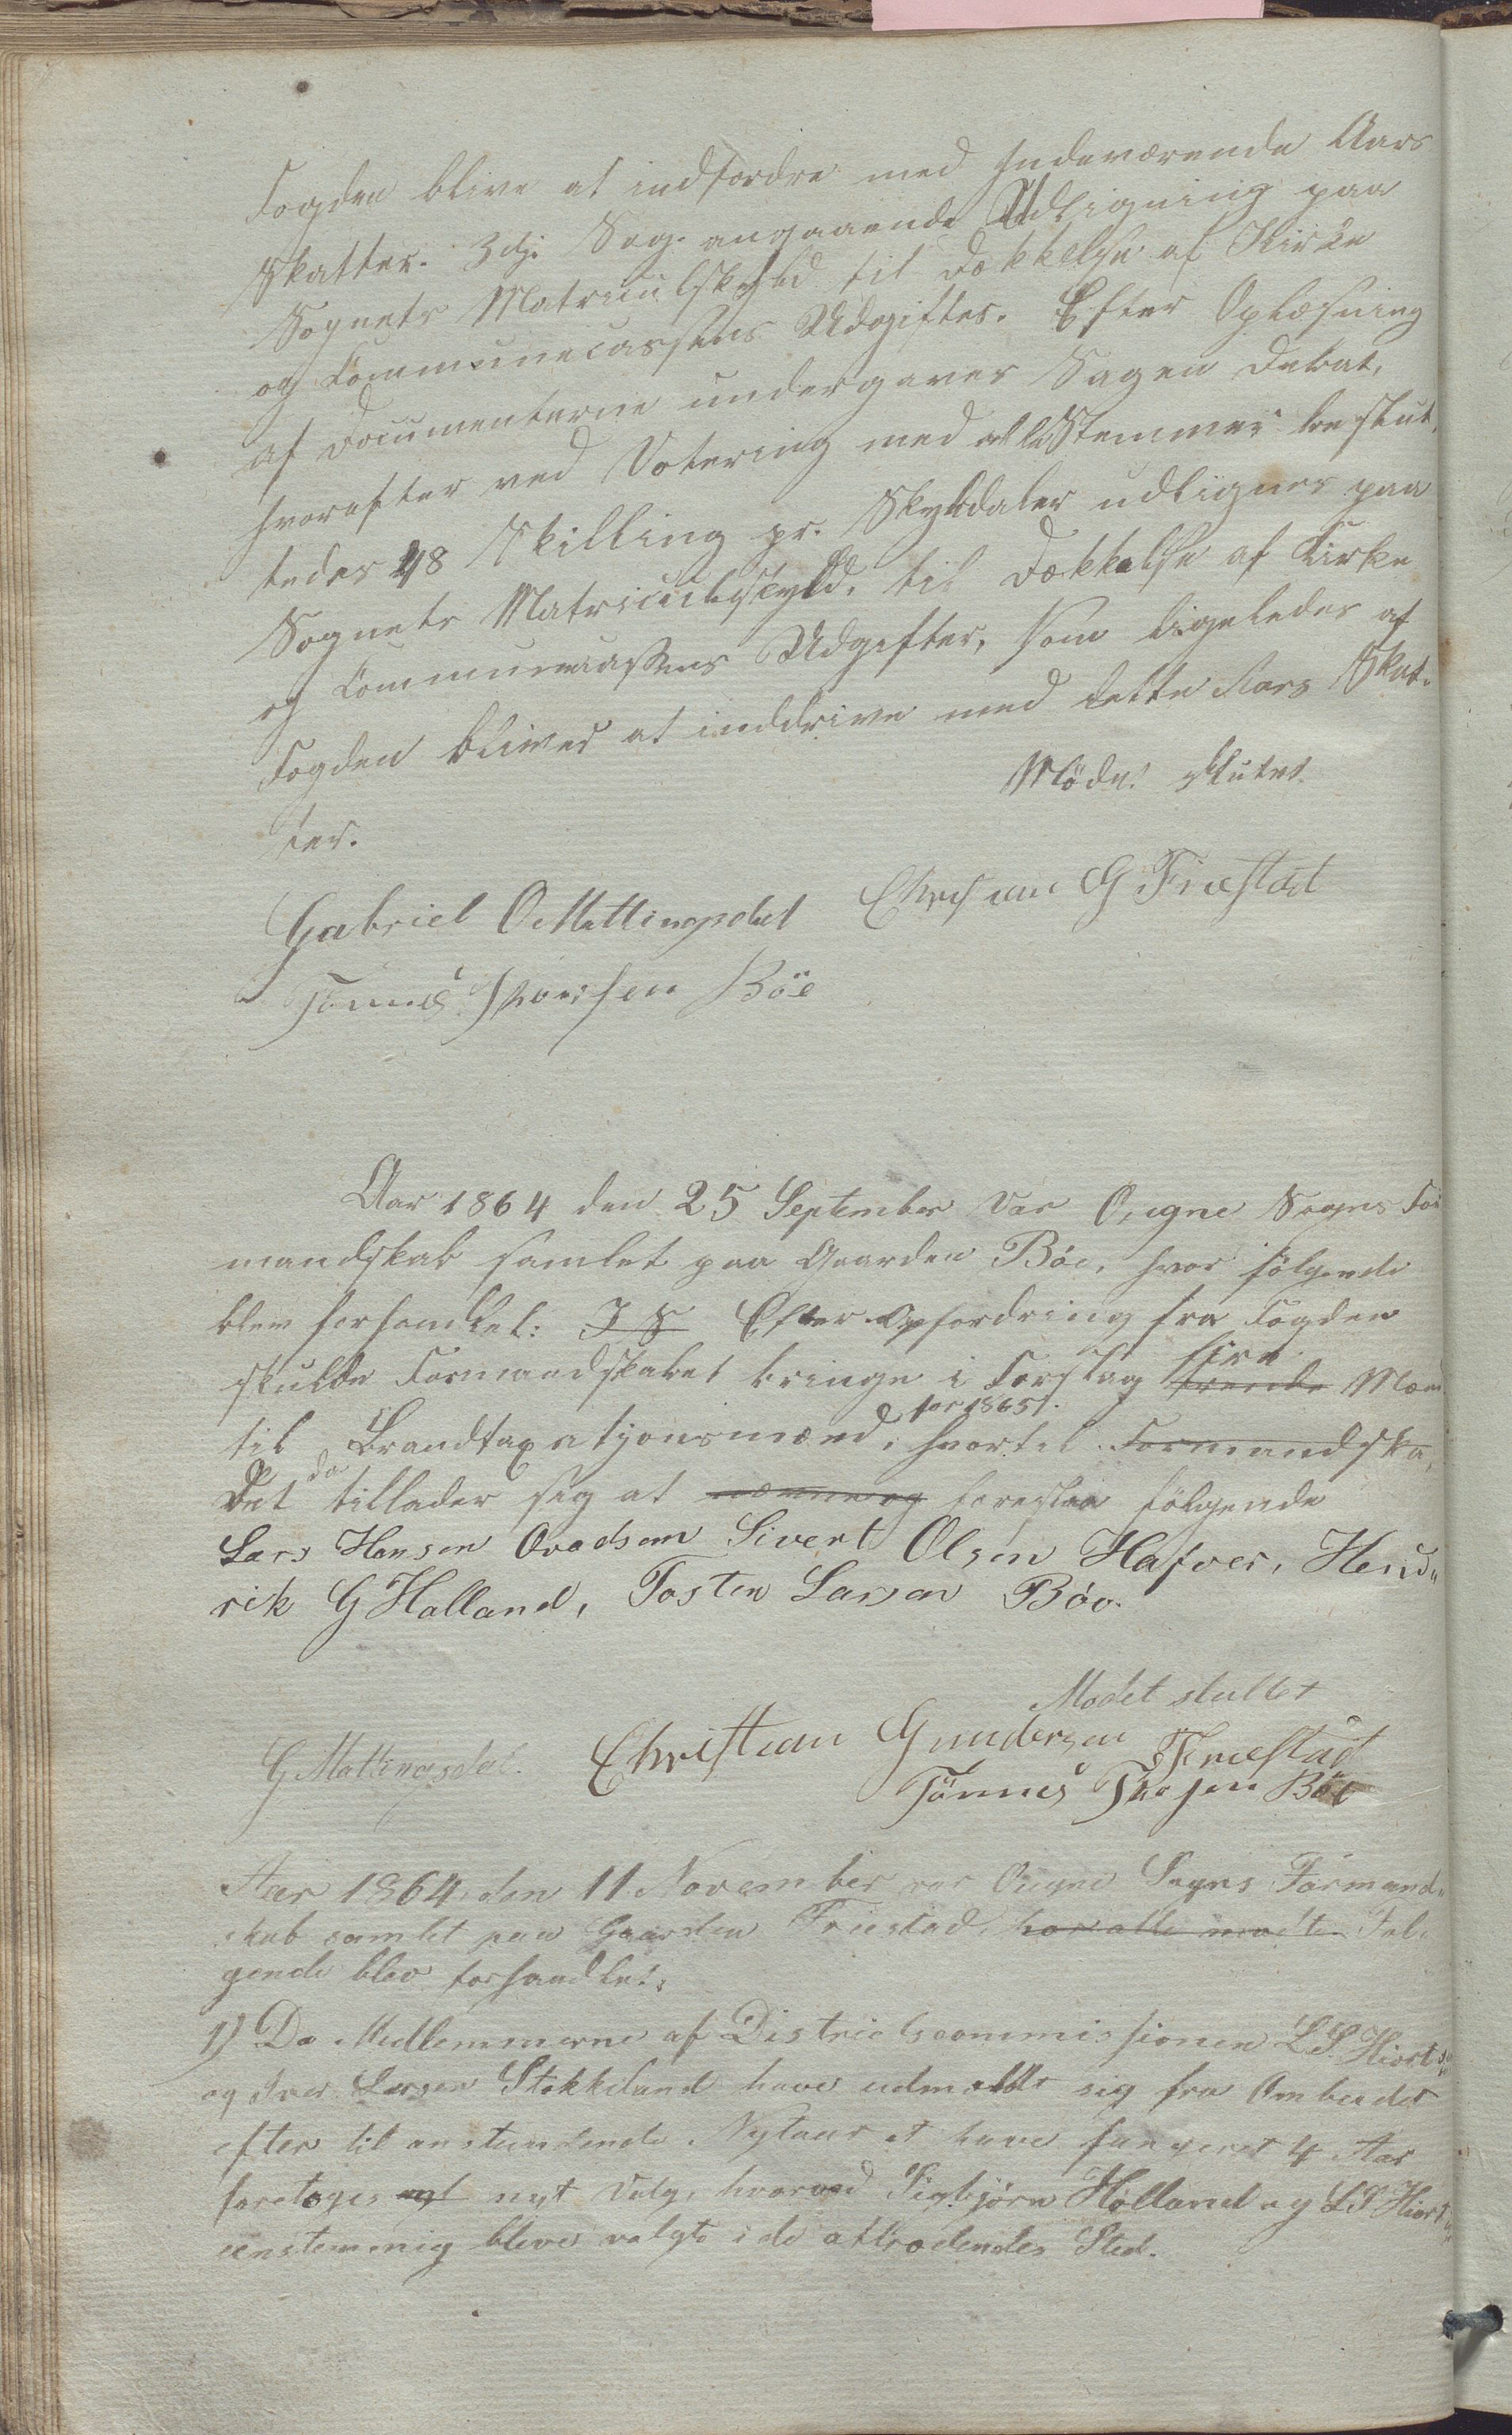 Fogden blive at indfordre med Indeværende Aars
Skatter. 3die Sag. angaaende Udligning paa
Sognets Matriculskyld til Dækkelse af Kirke
og Communecassens Udgifter. Efter Oplæsning
af Documenterne undergaves Sagen Debat,
hvorefter ved Votering med alle Stemmer beslut,
tedes 48 Skilling pr. Skylddaler udlignes paa
Sognets Matriculskyld, til Dækkelse af Kirke
og Communecassens Udgifter, som ligeledes af
Fogden bliver at inddrive med dette Aars Skat-
ter.
Mödet sluttet
Gabriel O Mattingsdal
Christian G Friestad
Tönnes Thorsen Böe
Aar 1864 den 25 September var Ougne Sogns For
mandskab samlet paa Gaarden Böe, hvor fölgende
blev forhandlet: Efter Opfordring fra Fogden
skulde Formandskabet bringe i Forslag fire Mænd
til Brandtaxationsmænd for 1865, hvortil Formandska,
Det da tillader sig at foreslaa fölgende
Lars Hansen Sivert Olsen Hend„
rik G Holland, Tosten Larsen Böe.
Mødet sluttet
G Mattingsdal. Christian Gundersen Friestad
Tönnes Thorsen Böe
Aar 1864 den 11 November var Ougne Sogns Formand„
skab samlet paa Gaarden Friestad, hvor alle mødte Føl„
gende blev forhandlet:
1) Da Medlemmerne af Districtscommissionen L S Hiort
og Iver Larsen Stokkeland have udmeldt sig fra Ombudet
efter til anstundende Nytaar at have fungeret 4 Aar
foretoges nyt Valg, hvorved Sigbjörn Holland og L S Hiort
eenstemmig bleve valgte i de aftrædendes Sted.